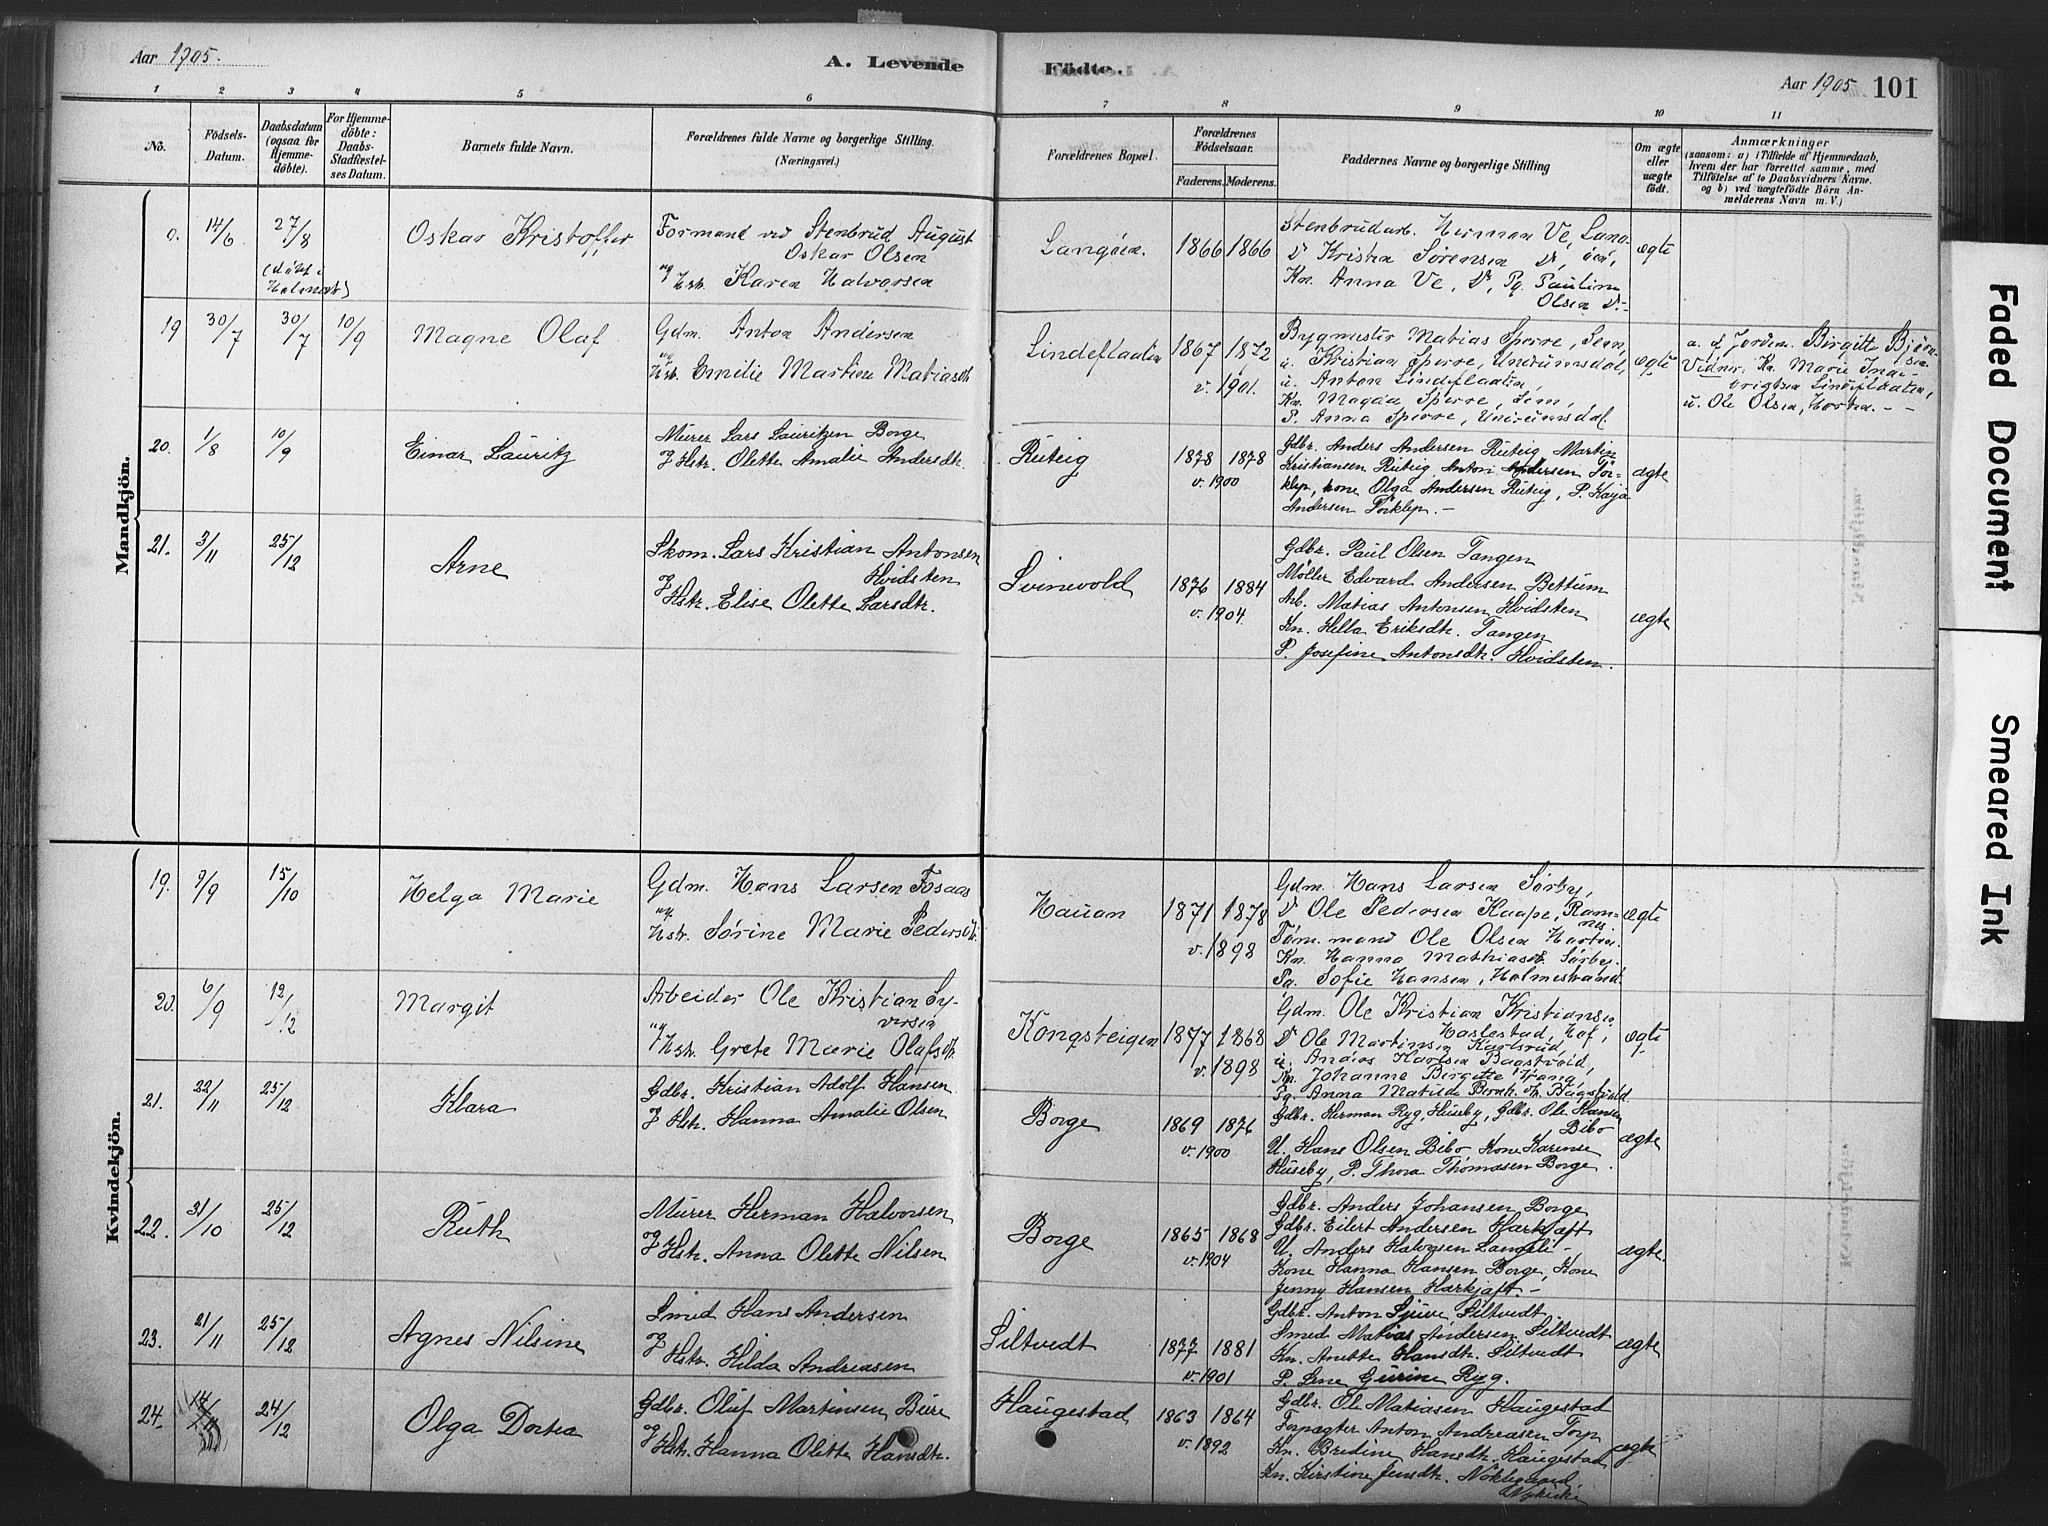 Aar 1905.
A. Levende
Födte.
Aar 1905
101
1 2 3 4 5 6 7 8 9 10 11
No.
Födsels-
Datum.
Daabsdatum
(ogsaa for
Hjemme-
döbte).
For Hjemme-
döbte:
Daabs-
Stadfæstel-
ses Datum.
Barnets fulde Navn.
Forældrenes fulde Navne og borgerlige Stilling.
(Næringsvei.)
Forældrenes Bopæl.
Forældrenes
Födselsaar.
Faderens. Moderens.
Faddernes Navne og borgerlige Stilling
Om ægte
eller
uægte
födt.
Anmærkninger
(saasom: a) i Tilfælde af Hjemmedaab,
hvem der har forrettet samme, med
Tilföielse af to Daabsvidners Navne.
og b) ved uægtefödte Börn An-
melderens Navn m. V.)
Mandkjön.
14/6 27/8
(døbt i
Holmestr)
Oskar Kristoffer
Formand ved Stenbrud August
Oskar Olsen
og Hstr. Karen Halvorsen
Langöen.
1866 1866
Stenbrudarb. Herman Ve, Lang-
D Kristen Sørensen D, öen,
Kn. Anna Ve, D, Pg. Pauline
Olsen D.-
ægte
19 30/7 30/7 10/9
Magne Olaf
Gdm. Anton Andersen
og Hstr. Emilie Martine Matiasdtr
Lindeflaaten
1867 1872
v. 1901.
Bygmester Matias Sperre, Sem,
u. Kristian Sperre, Undrumsdal,
u. Anton Lindeflaaten,
Kn. Magda Sperre, Sem,
P. Anna Sperre, Undrumsdal.
ægte
a. d. Jordm. Birgitte Bjørn-
sen
Vidner: Kn. Marie Ing-
brigtsen Lindeflaaten,
u. Ole Olsen, Horten. - -
20. 1/8 10/9
Einar Lauritz
Murer Lars Lauritzen Borge
og Hstr. Olette Amalie Andersdtr.
Ruteig
1878 1878
v. 1900
Gdbr. Anders Andersen Ruteig Martin
Kristiansen Ruteig Anton Andersen Tor-
klep, kone Olga Andersen Ruteig, P. Kaja
Andersen Torklep. -
ægte
21. 3/11 25/12
Arne
Skom. Lars Kristian Antonsen
Hvidsten
og Hstr. Elise Olette Larsdtr.
Svinevold
1876 1884
v. 1904.
Gdbr. Paul Olsen Tangen
Møller Edvard Andersen Bettum
Arb. Matias Antonsen Hvidsten
Kn. Hella Eriksdtr. Tangen
P. Josefine Antonsdtr. Hvidsten.
ægte
Kvindekjön.
19. 9/9 15/10
Helga Marie
Gdm. Hans Larsen Fosaas
og Hstr. Sørine Marie Pedersdtr.
Hauan
1871 1878
v. 1898
Gdm. Hans Larsen Sørby,
D Ole Pedersen Kaape, Ram-
nes.
Tøm.mand Ole Olsen Horten.
Kn. Hanna Mathiasdtr. Sørby.
Pg. Sofie Hansen, Holmestrand.
ægte
20. 6/9 12/12
Margit
Arbeider Ole Kristian Sy-
versen
og Hstr. Grete Marie Olafsdtr.
Kongsteigen
1877 1868
v. 1898
Gdm. Ole Kristian Kristiansen
Haslestad, Hof,
D Ole Martinsen Karlsrud,
u. Anders Karlsen Bagstvold,
Kn. Johanne Birgitte Vang,
Pg. Anna Matilde Berntsdtr. Bagstvold.
ægte
21. 22/11 25/12
Klara
Gdbr. Kristian Adolf Hansen
og Hstr. Hanna Amalie Olsen
Borge
1869 1876
v. 1900
Gdbr. Herman Ryg, Huseby, Gdbr. Ole Hansen
Bibo
U. Hans Olsen Bibo Kone Karense
Huseby, P. Thora Thomassen Borge.
ægte
22. 31/10 25/12
Ruth
Murer Herman Halvorsen
og Hstr. Anna Olette Nilsen
Borge
1865 1868
v. 1904
Gdbr. Anders Johansen Borge
Gdbr. Eilert Andersen Harkjaft
U. Anders Halvorsen Langeli -
Kone Hanna Hansen Borge, Kone
Jenny Hansen Harkjaft. -
ægte.
23. 21/11 25/12
Agnes Nilsine
Smed Hans Andersen
og
Hstr. Hilda Andreasen
Siltvedt
1877 1881
v. 1901
Gdbr. Anton Sjuve, Siltvedt.
Smed Matias Andersen Siltvedt
Kn. Anette Hansdtr. Siltvedt
P. Lene Gurine Ryg.
ægte
24. 24/12
Olga Dortea
Gdbr. Oluf Martinsen Bure
og Hstr. Hanna Olette Hansdtr.
Haugestad
1863 1864
v. 1892
Gdbr. Ole Matiasen Haugestad
Forpagter Anton Andreasen Torp
Kn. Bredine Hansdtr. Haugestad
Kn. Kirstine Jensdtr. Nøklegaard
ægte
Faded Document
Smeared Ink